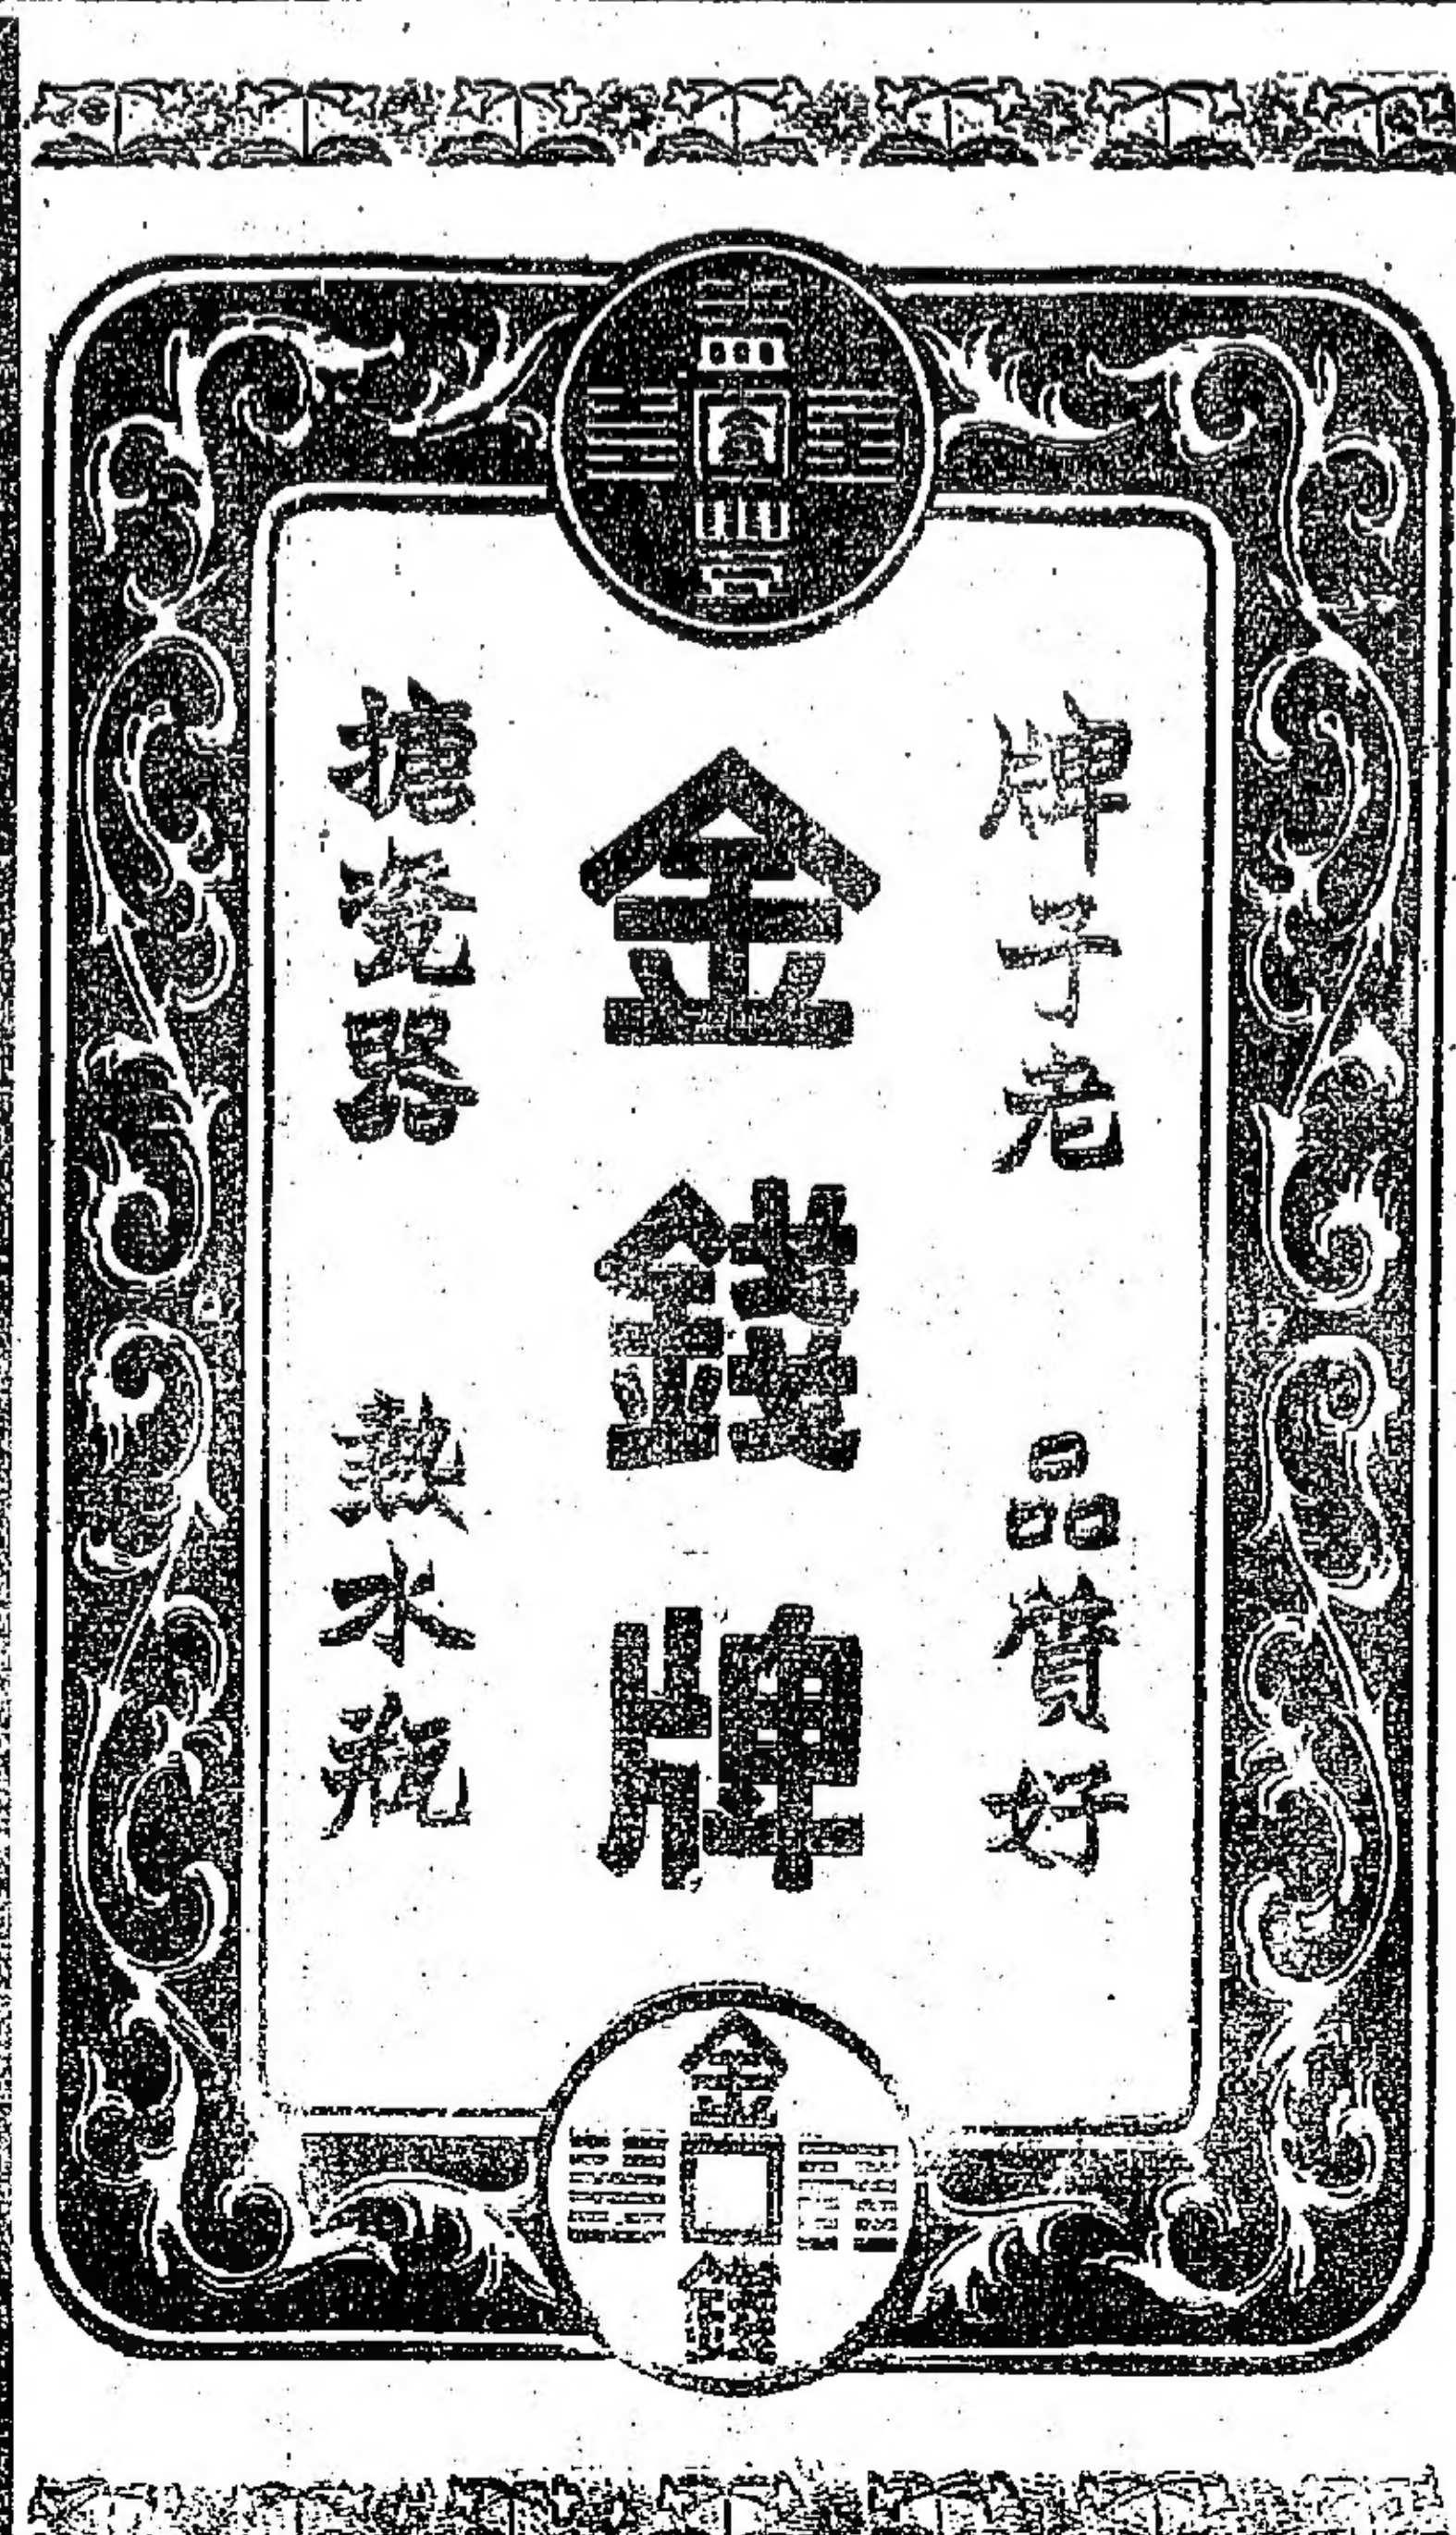 牌子老 品質好
金錢牌
搪瓷器 熱水瓶
金
錢